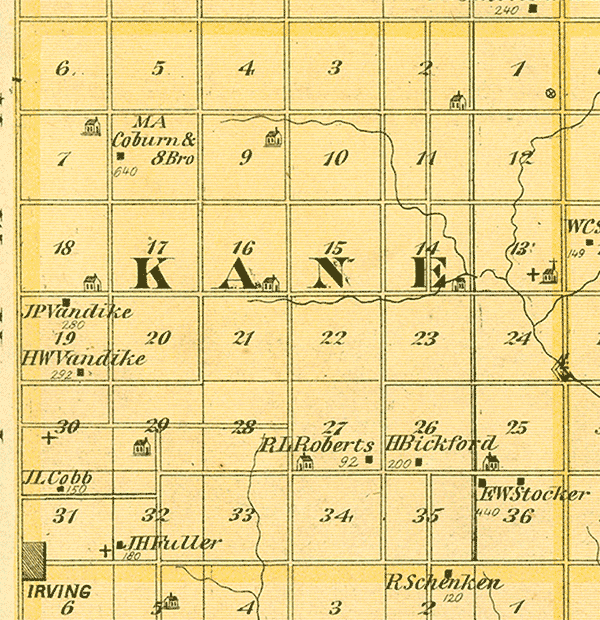 240
6 5 4 3 2 1
MA
Coburn &
7 8 Bro 9 10 11 12
640
WCS
18 17 16 15 14 13
149
KANE
JPVandike
280
19 20 21 22 23 24
HWVandike
292
30 29 28 27 26 25
RLRoberts HBickford
92 200
JLCobb
150
EWStocker
440
31 32 33 34 35 36
JHFuller
180
RSchenken
120
IRVING
6 5 4 3 2 1